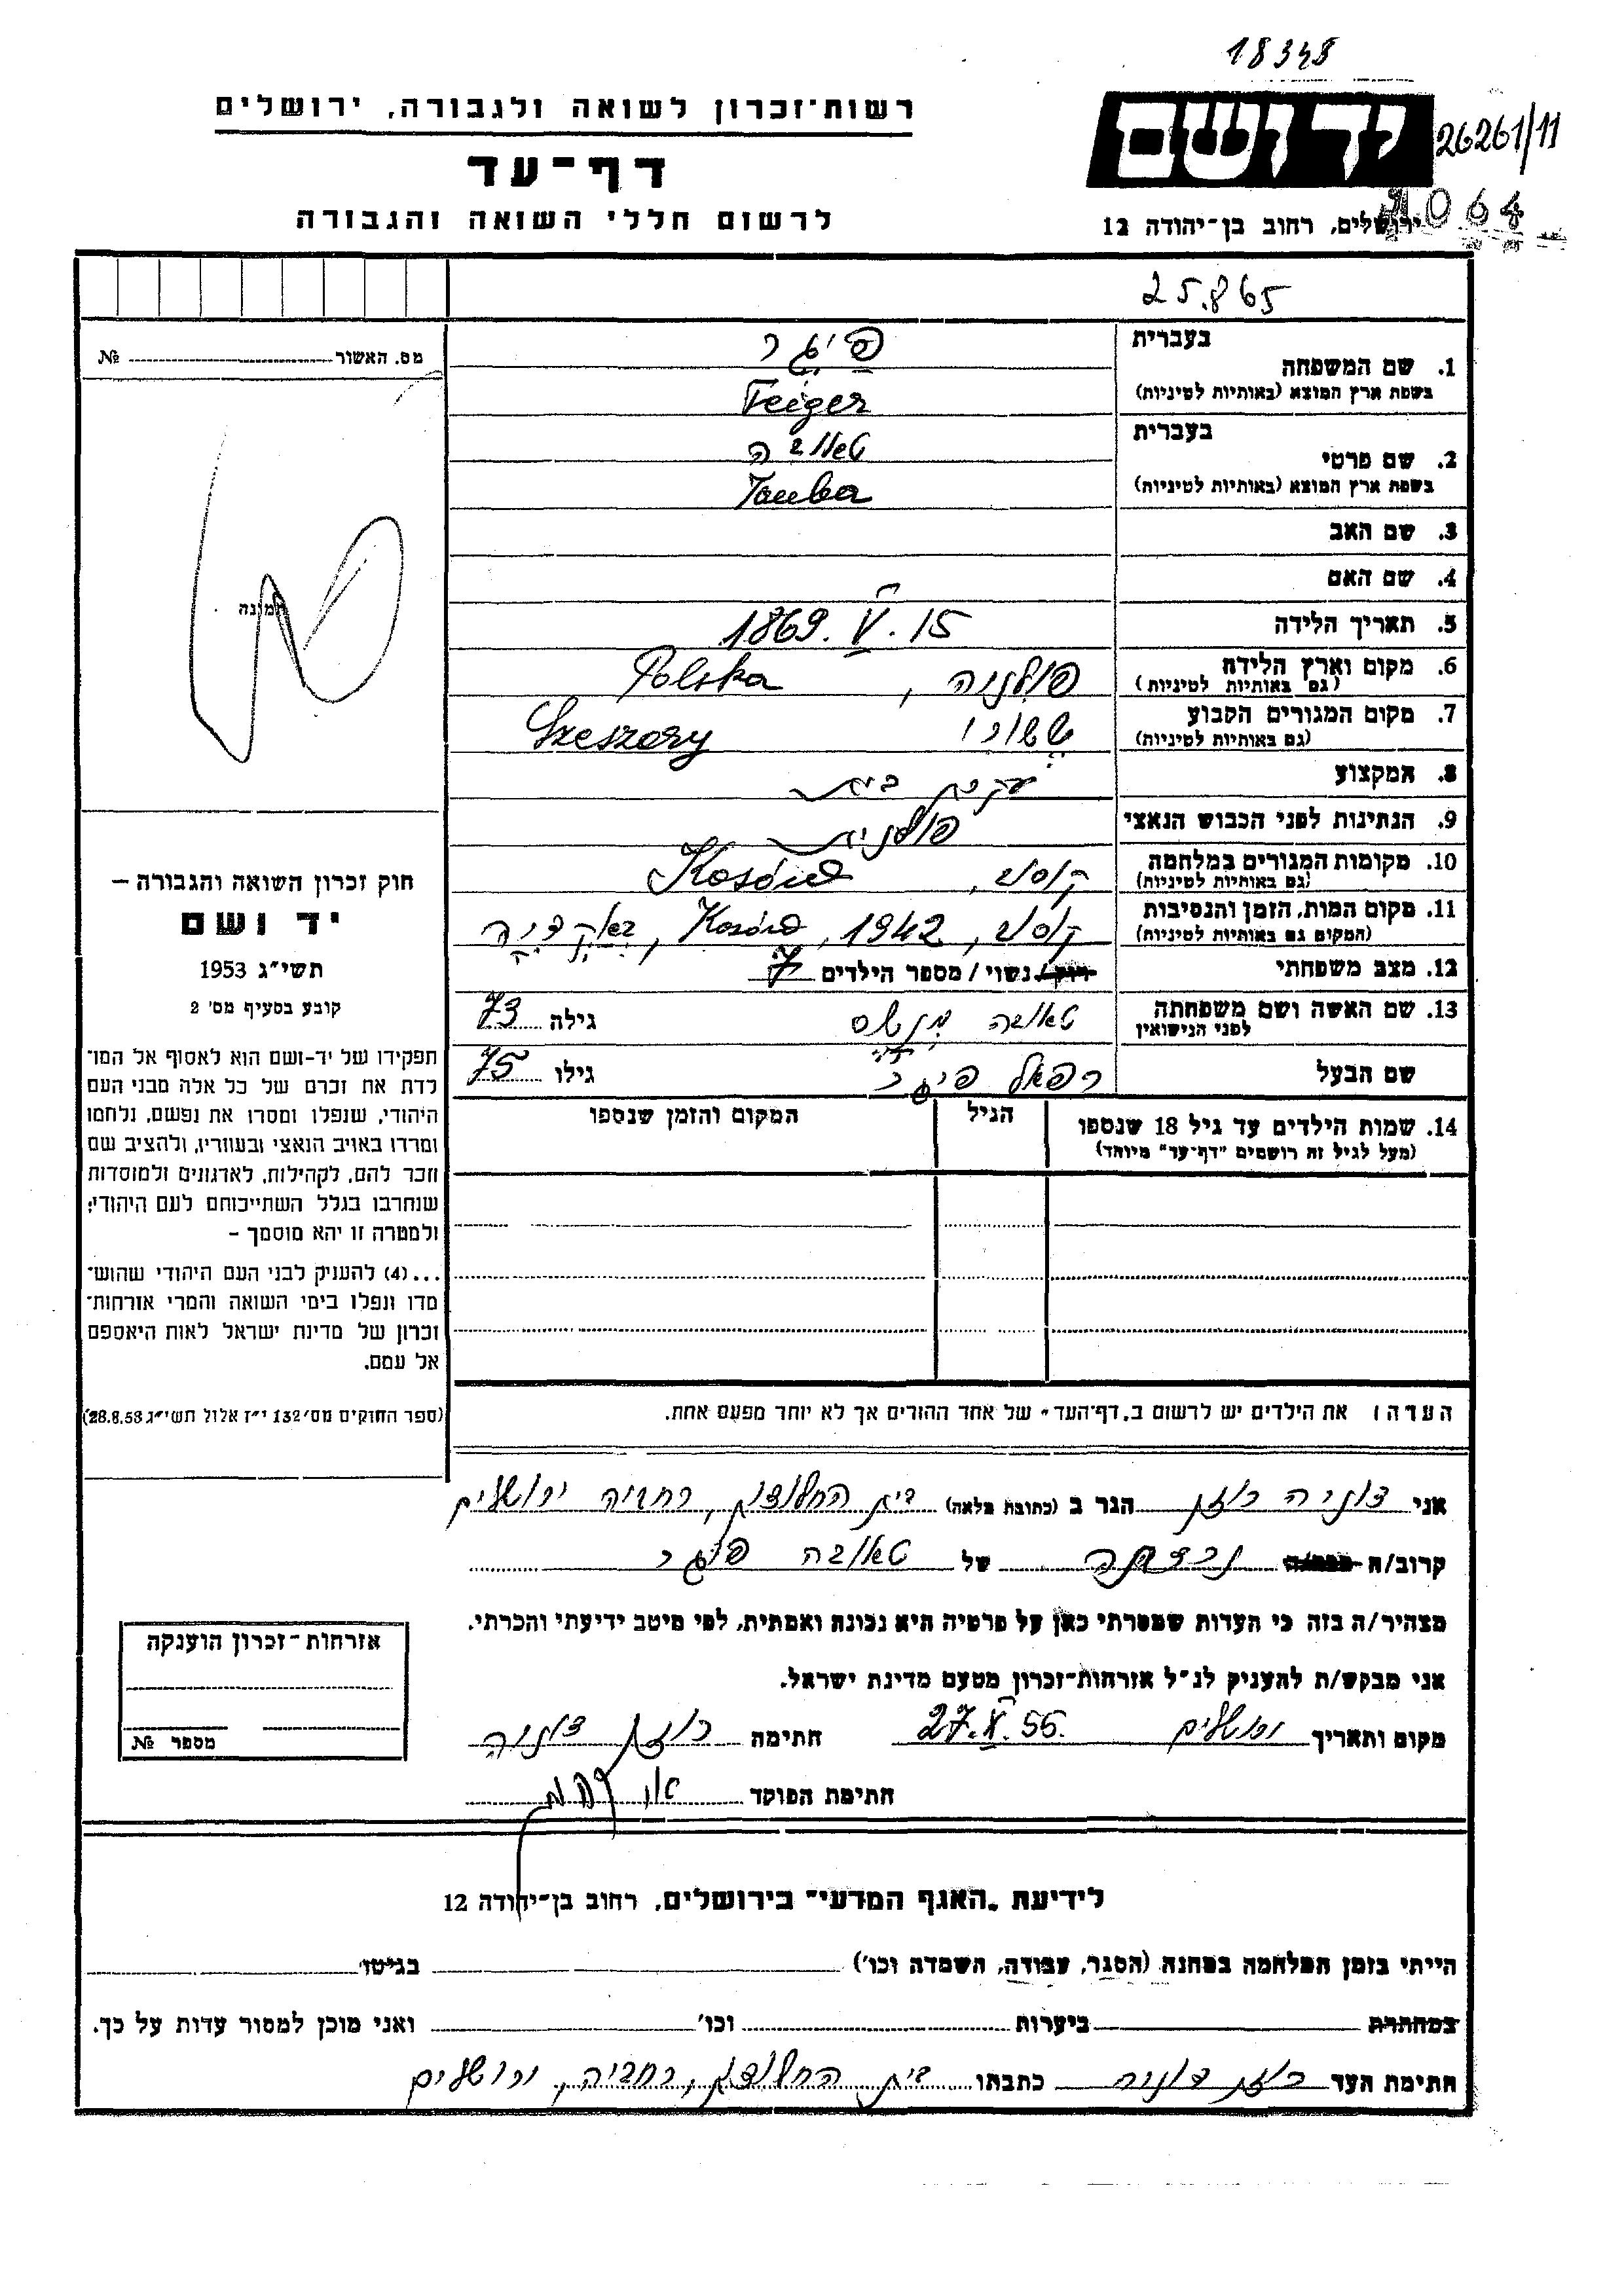 18348
רשות־זכרון לשואה ולגבורה, ירושלים
יד ושם
26261/11
דף־עד
לרשום חללי השואה והגבורה
ירושלים, רחוב בן־יהודה 12
064
25.865
מס. האשור № 
בעברית
פיגר
1. שם המשפחה
בשפת ארץ המוצא (באותיות לטיניות)
Feiger
בעברית
טאובה
2. שם פרטי
בשפת ארץ המוצא (באותיות לטיניות)
Tauba
3. שם האב
4. שם האם
תמונה
5. תאריך הלידה 1869. V. 15
6. מקום וארץ הלידה פולניה, Polska
(גם באותיות לטיניות)
7. מקום המגורים הקבוע ששורי Szeszory
(גם באותיות לטיניות)
8. המקצוע עקרת בית
9. הנתינות לפני הכבוש הנאצי פולנית
10. מקומות המגורים במלחמה קוסוב, Kosów
(גם באותיות לטיניות)
11. מקום המות, הזמן והנסיבות קוסוב, 1942, Kosów, באקציה
(המקום גם באותיות לטיניות)
12. מצב משפחתי רווק/נשוי/מספר הילדים 7
13. שם האשה ושם משפחתה טאובה גילה 73
לפני הנישואין
שם הבעל רפאל פיגר גילו 75
14. שמות הילדים עד גיל 18 שנספו הגיל המקום והזמן שנספו
(מעל לגיל זה רושמים "דף־עד" מיוחד)
חוק זכרון השואה והגבורה –
יד ושם
תשי״ג 1953
קובע בסעיף מס׳ 2
תפקידו של יד-ושם הוא לאסוף אל המו־
לדת את זכרם של כל אלה מבני העם
היהודי, שנפלו ומסרו את נפשם, נלחמו
ומרדו באויב הנאצי ובעוזריו, ולהציב שם
וזכר להם, לקהילות, לארגונים ולמוסדות
שנחרבו בגלל השתייכותם לעם היהודי;
ולמטרה זו יהא מוסמך –
...(4) להעניק לבני העם היהודי שהוש־
מדו ונפלו בימי השואה והמרי אזרחות־
זכרון של מדינת ישראל לאות היאספם
אל עמם.
(ספר החוקים מס׳ 132 י״ז אלול תשי״ג 28.8.53)
הערה: את הילדים יש לרשום ב„דף־העד״ של אחד ההורים אך לא יותר מפעם אחת.
אני צוניה רוזן הגר ב (כתובת מלאה) בית החלוצות, רחביה ירושלים
קרוב/ה מכר/ה נכדתה של טאובה פיגר
מצהיר/ה בזה כי העדות שמסרתי כאן על פרטיה היא נכונה ואמתית, לפי מיטב ידיעתי והכרתי.
אני מבקש/ת להעניק לנ״ל אזרחות־זכרון מטעם מדינת ישראל.
מקום ותאריך ירושלים 27.V.55. חתימה רוזן צוניה
חתימת הפוקד
אזרחות־זכרון הוענקה
מספר №
לידיעת „האגף המדעי״ בירושלים, רחוב בן־יהודה 12
הייתי בזמן המלחמה במחנה (הסגר, עבודה, השמדה וכו׳) בגיטו
במחתרת ביערות וכו׳ ואני מוכן למסור עדות על כך.
חתימת העד רוזן צוניה כתבתו בית החלוצות, רחביה, ירושלים